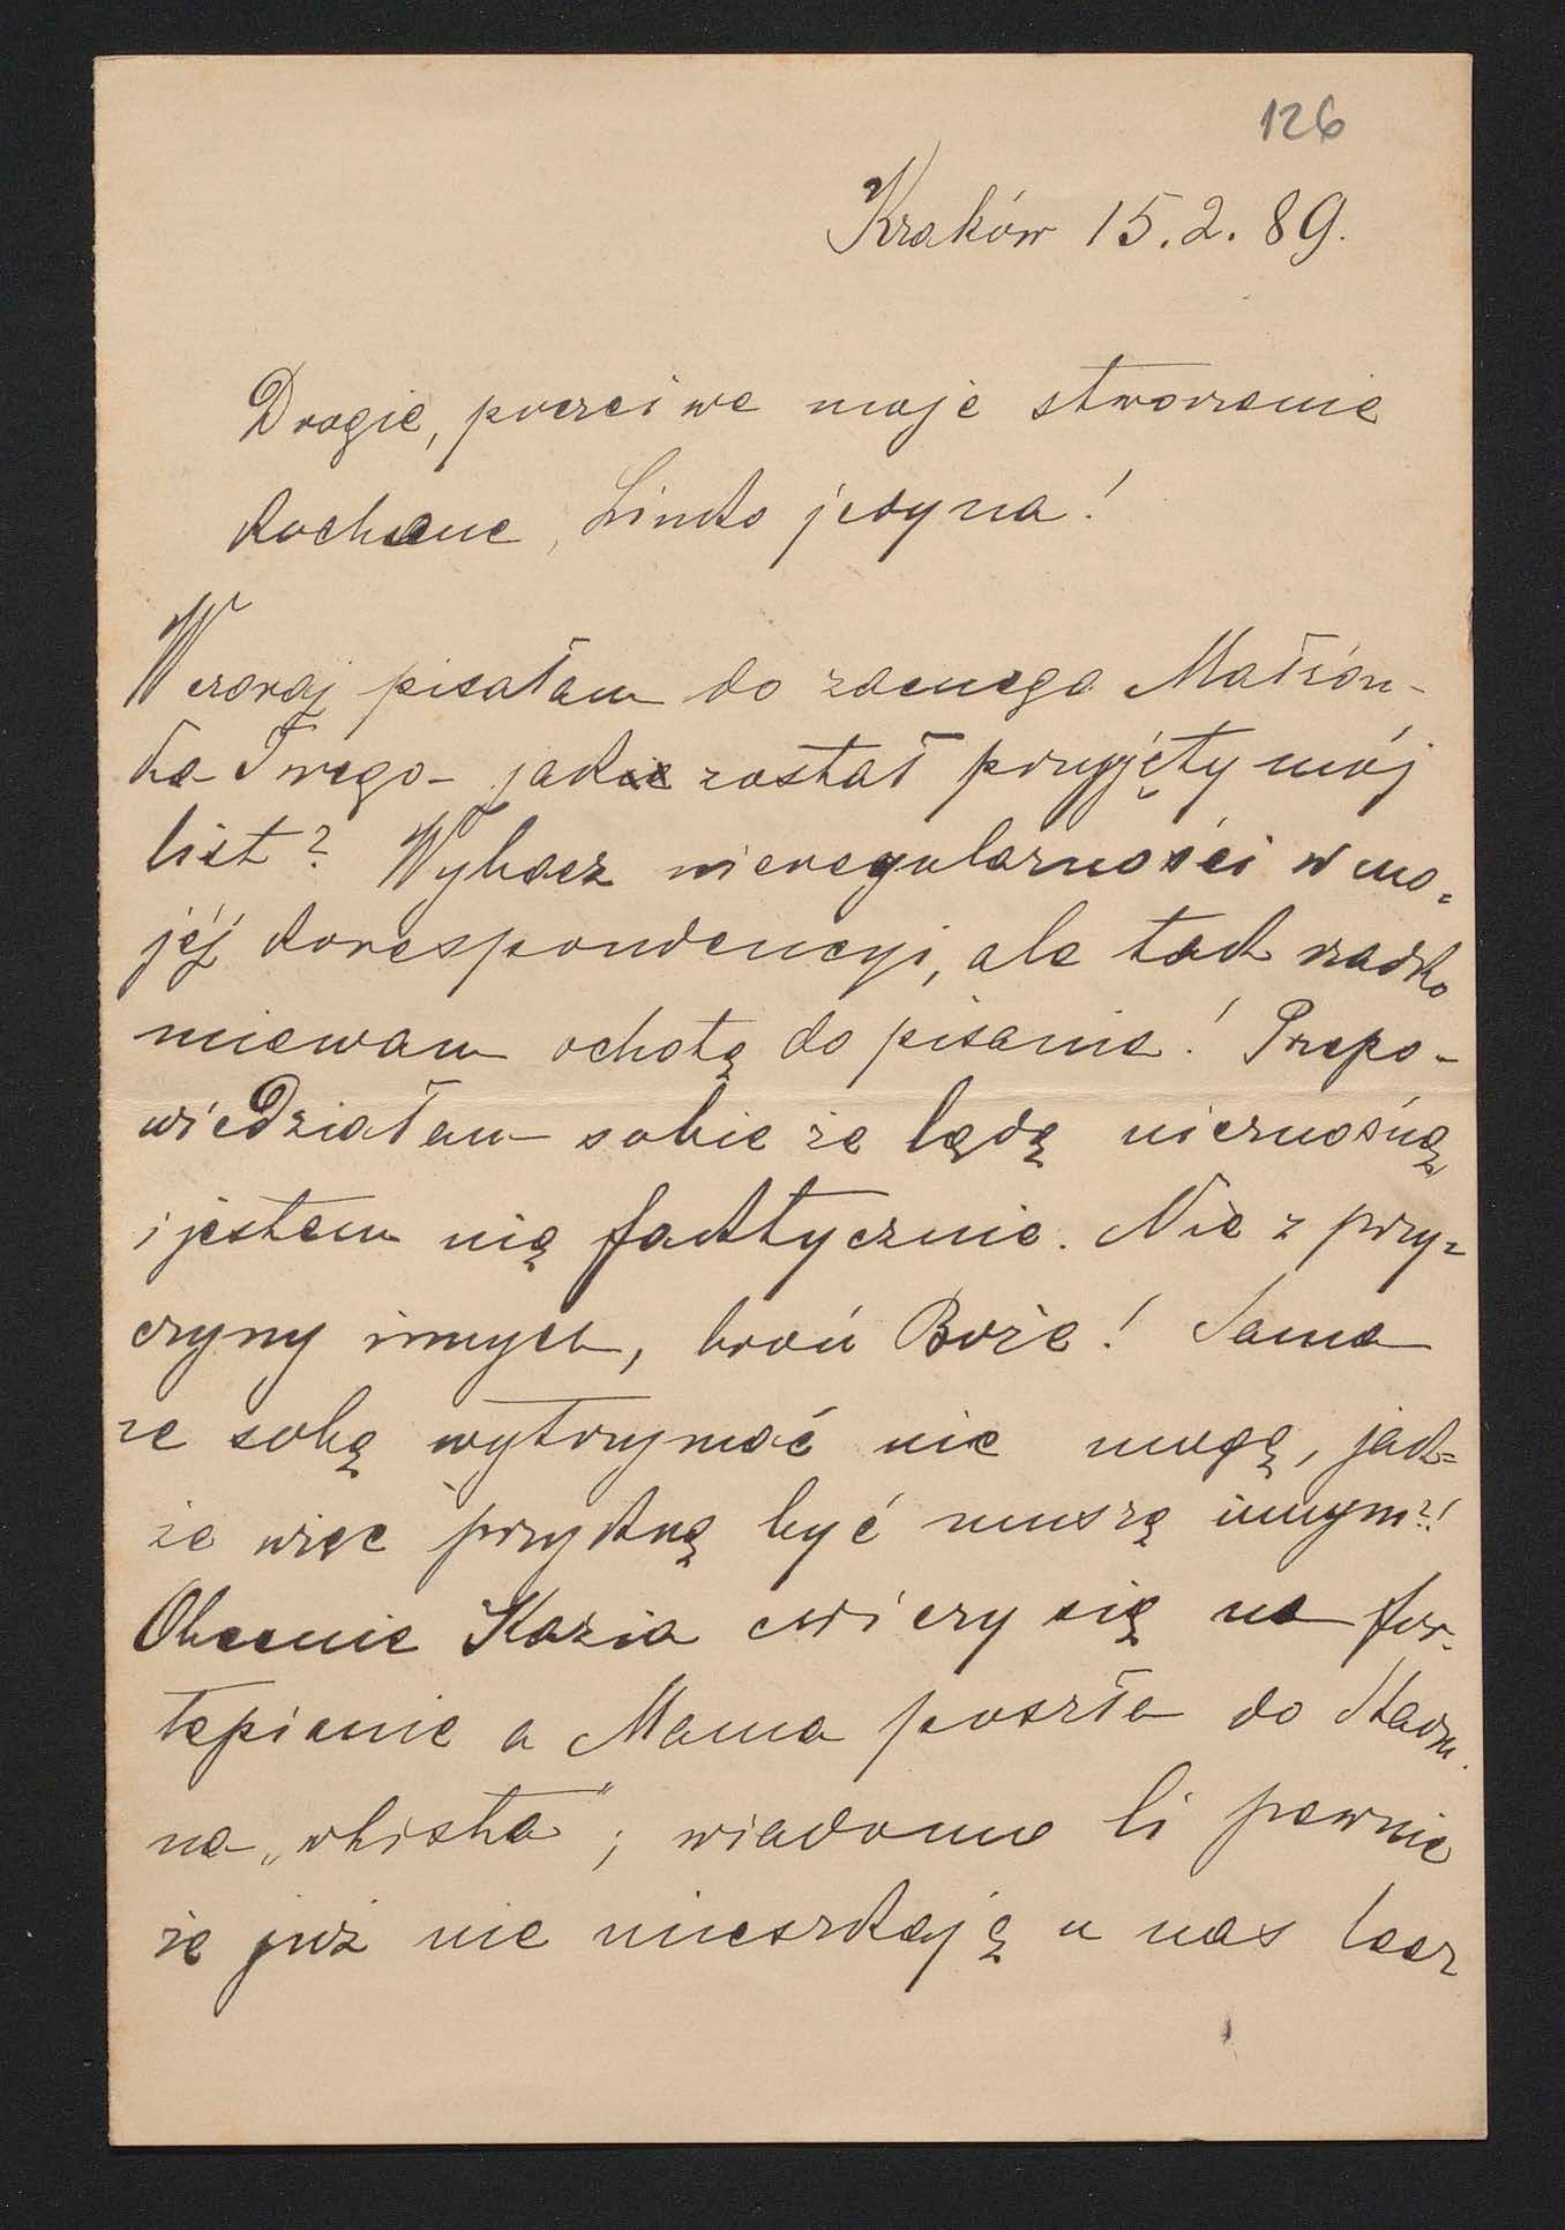 126
Kraków 15.2.89.
Drogie, poczciwe moje stworzenie
kochane, Linko jedyna!
Wczoraj pisałam do zacnego Małżon-
ka Twego – jak został przyjęty mój
list? Wybacz nieregularności w mo=
jéj korespondencyi, ale tak rzadko
miewam ochotę do pisania! Przepo-
wiedziałam sobie że będę nieznośną
i jestem nią faktycznie. Nie z przy=
czyny innych, broń Boże! Sama
ze sobą wytrzymać nie mogę, jak=
że więc przykrą być muszę innym?!
Obecnie Kazia ćwiczy się na for-
tepianie a Mama poszła do
na „whista"; wiadomo Ci pewnie
że już nie mieszkają u nas lecz